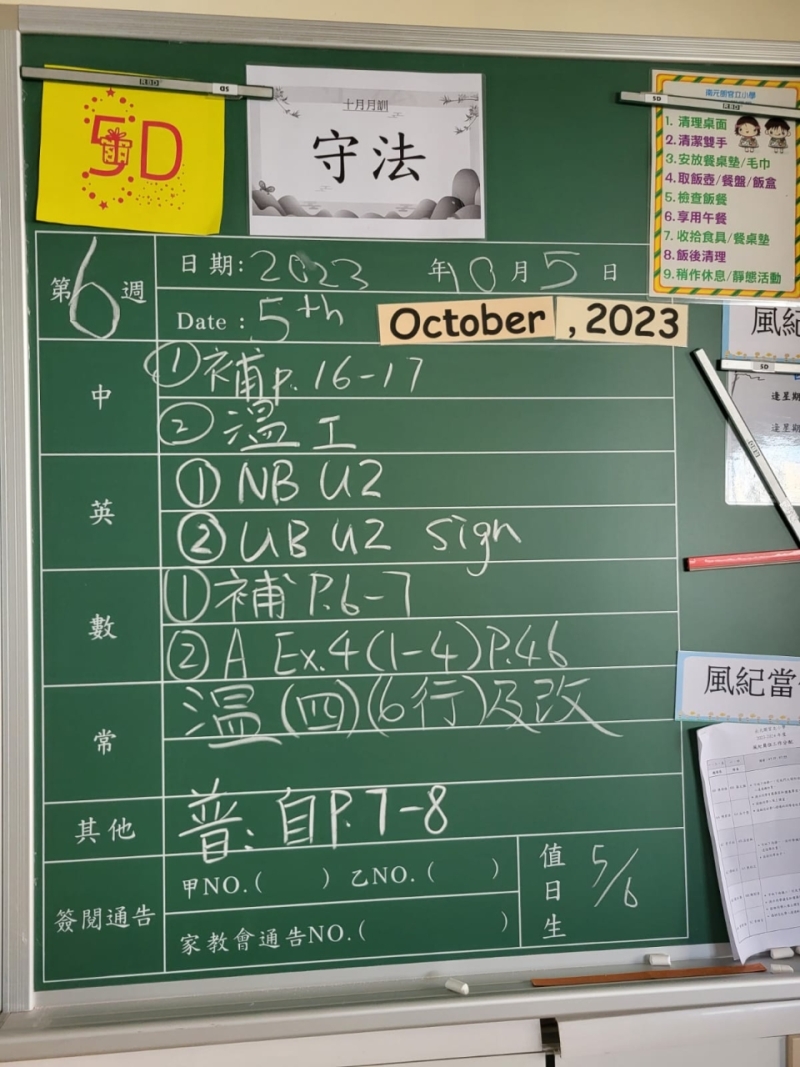 5D
十月月訓
守法
1. 清理桌面
2. 清潔雙手
3. 安放餐桌墊/毛巾
4. 取飯壺/餐盤/飯盒
5. 檢查飯餐
6. 享用午餐
7. 收拾食具/餐桌墊
8. 飯後清理
9. 稍作休息/靜態活動
第6週
日期: 2023 年10月5日
Date : 5th October , 2023
中
① 補 P. 16-17
② 溫工
英
① NB U2
② UB U2 sign
數
① 補 P.6-7
② A Ex.4 (1-4) P.46
常
溫(四)(6行)及改
其他
普: 自 P.7-8
簽閱通告
甲NO.( ) 乙NO.( )
家教會通告NO.( )
值日生
5/6
風紀
逢星期
風紀當